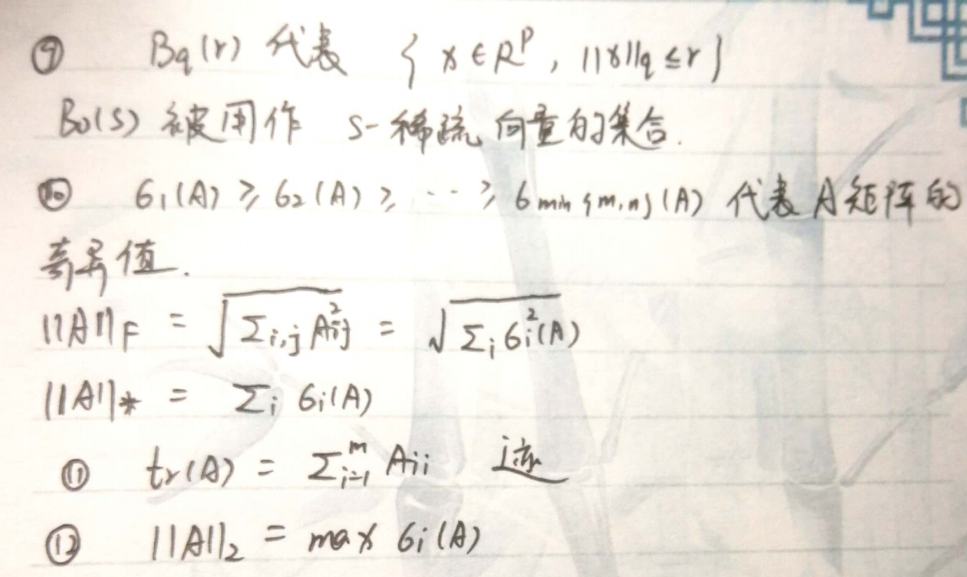 ⑨ Bq(r) 代表 { x ∈ R^p, ||x||q ≤ r }
B0(s) 被用作 s-稀疏向量的集合.
⑩ σ1(A) ≥ σ2(A) ≥ ··· ≥ σmin{m,n}(A) 代表A矩阵的
奇异值.
||A||F = √(Σi,j Aij²) = √(Σi σi²(A))
||A||* = Σi σi(A)
⑪ tr(A) = Σ_{i=1}^m Aii 迹
⑫ ||A||2 = max σi(A)